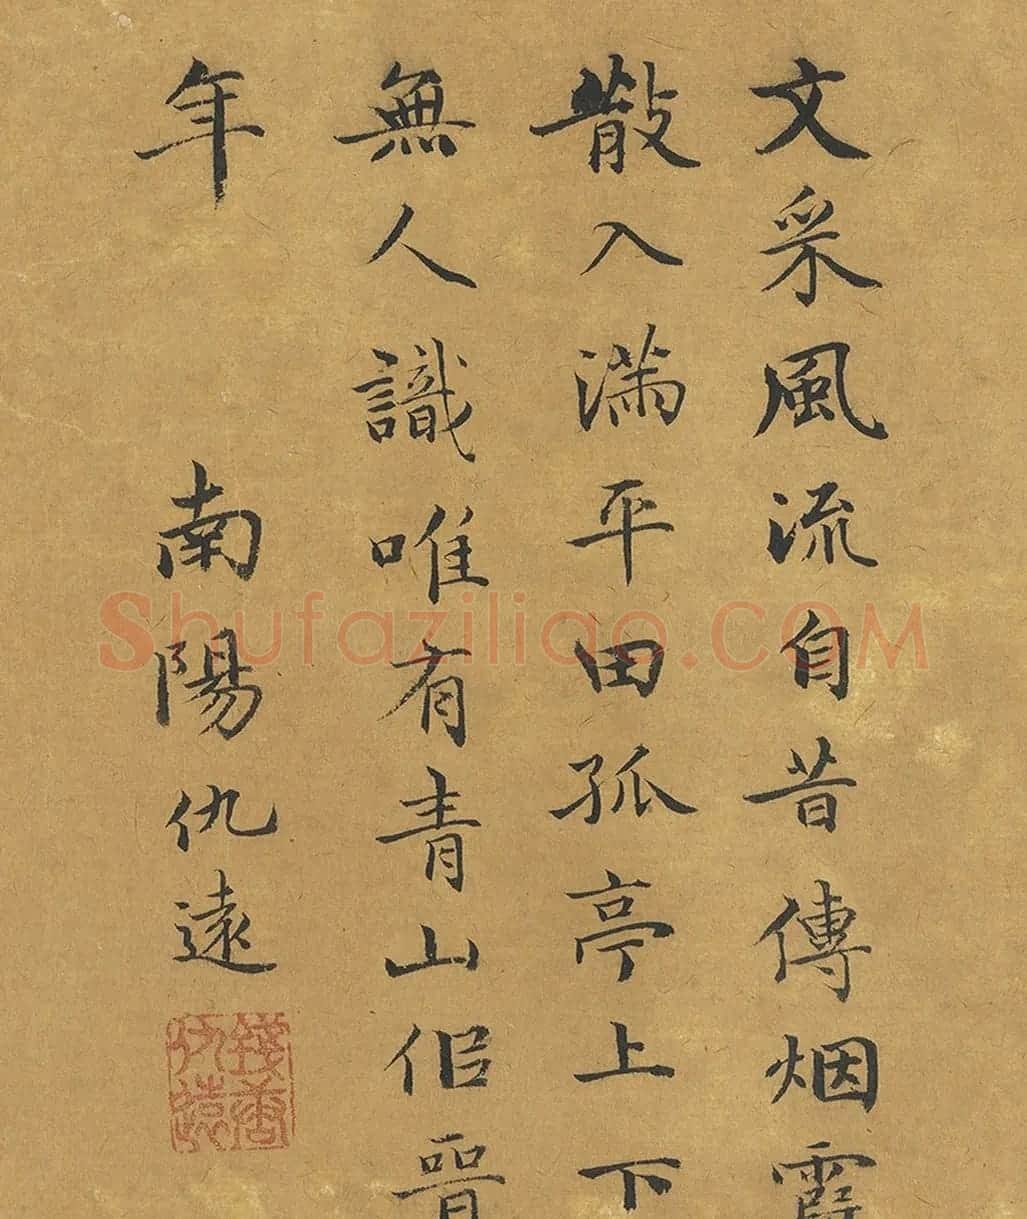 文采風流自昔傳烟霞
散入滿平田孤亭上下
無人識唯有青山佀晉
年
南陽仇遠
錢唐仇遠
Shufaziliao.COM